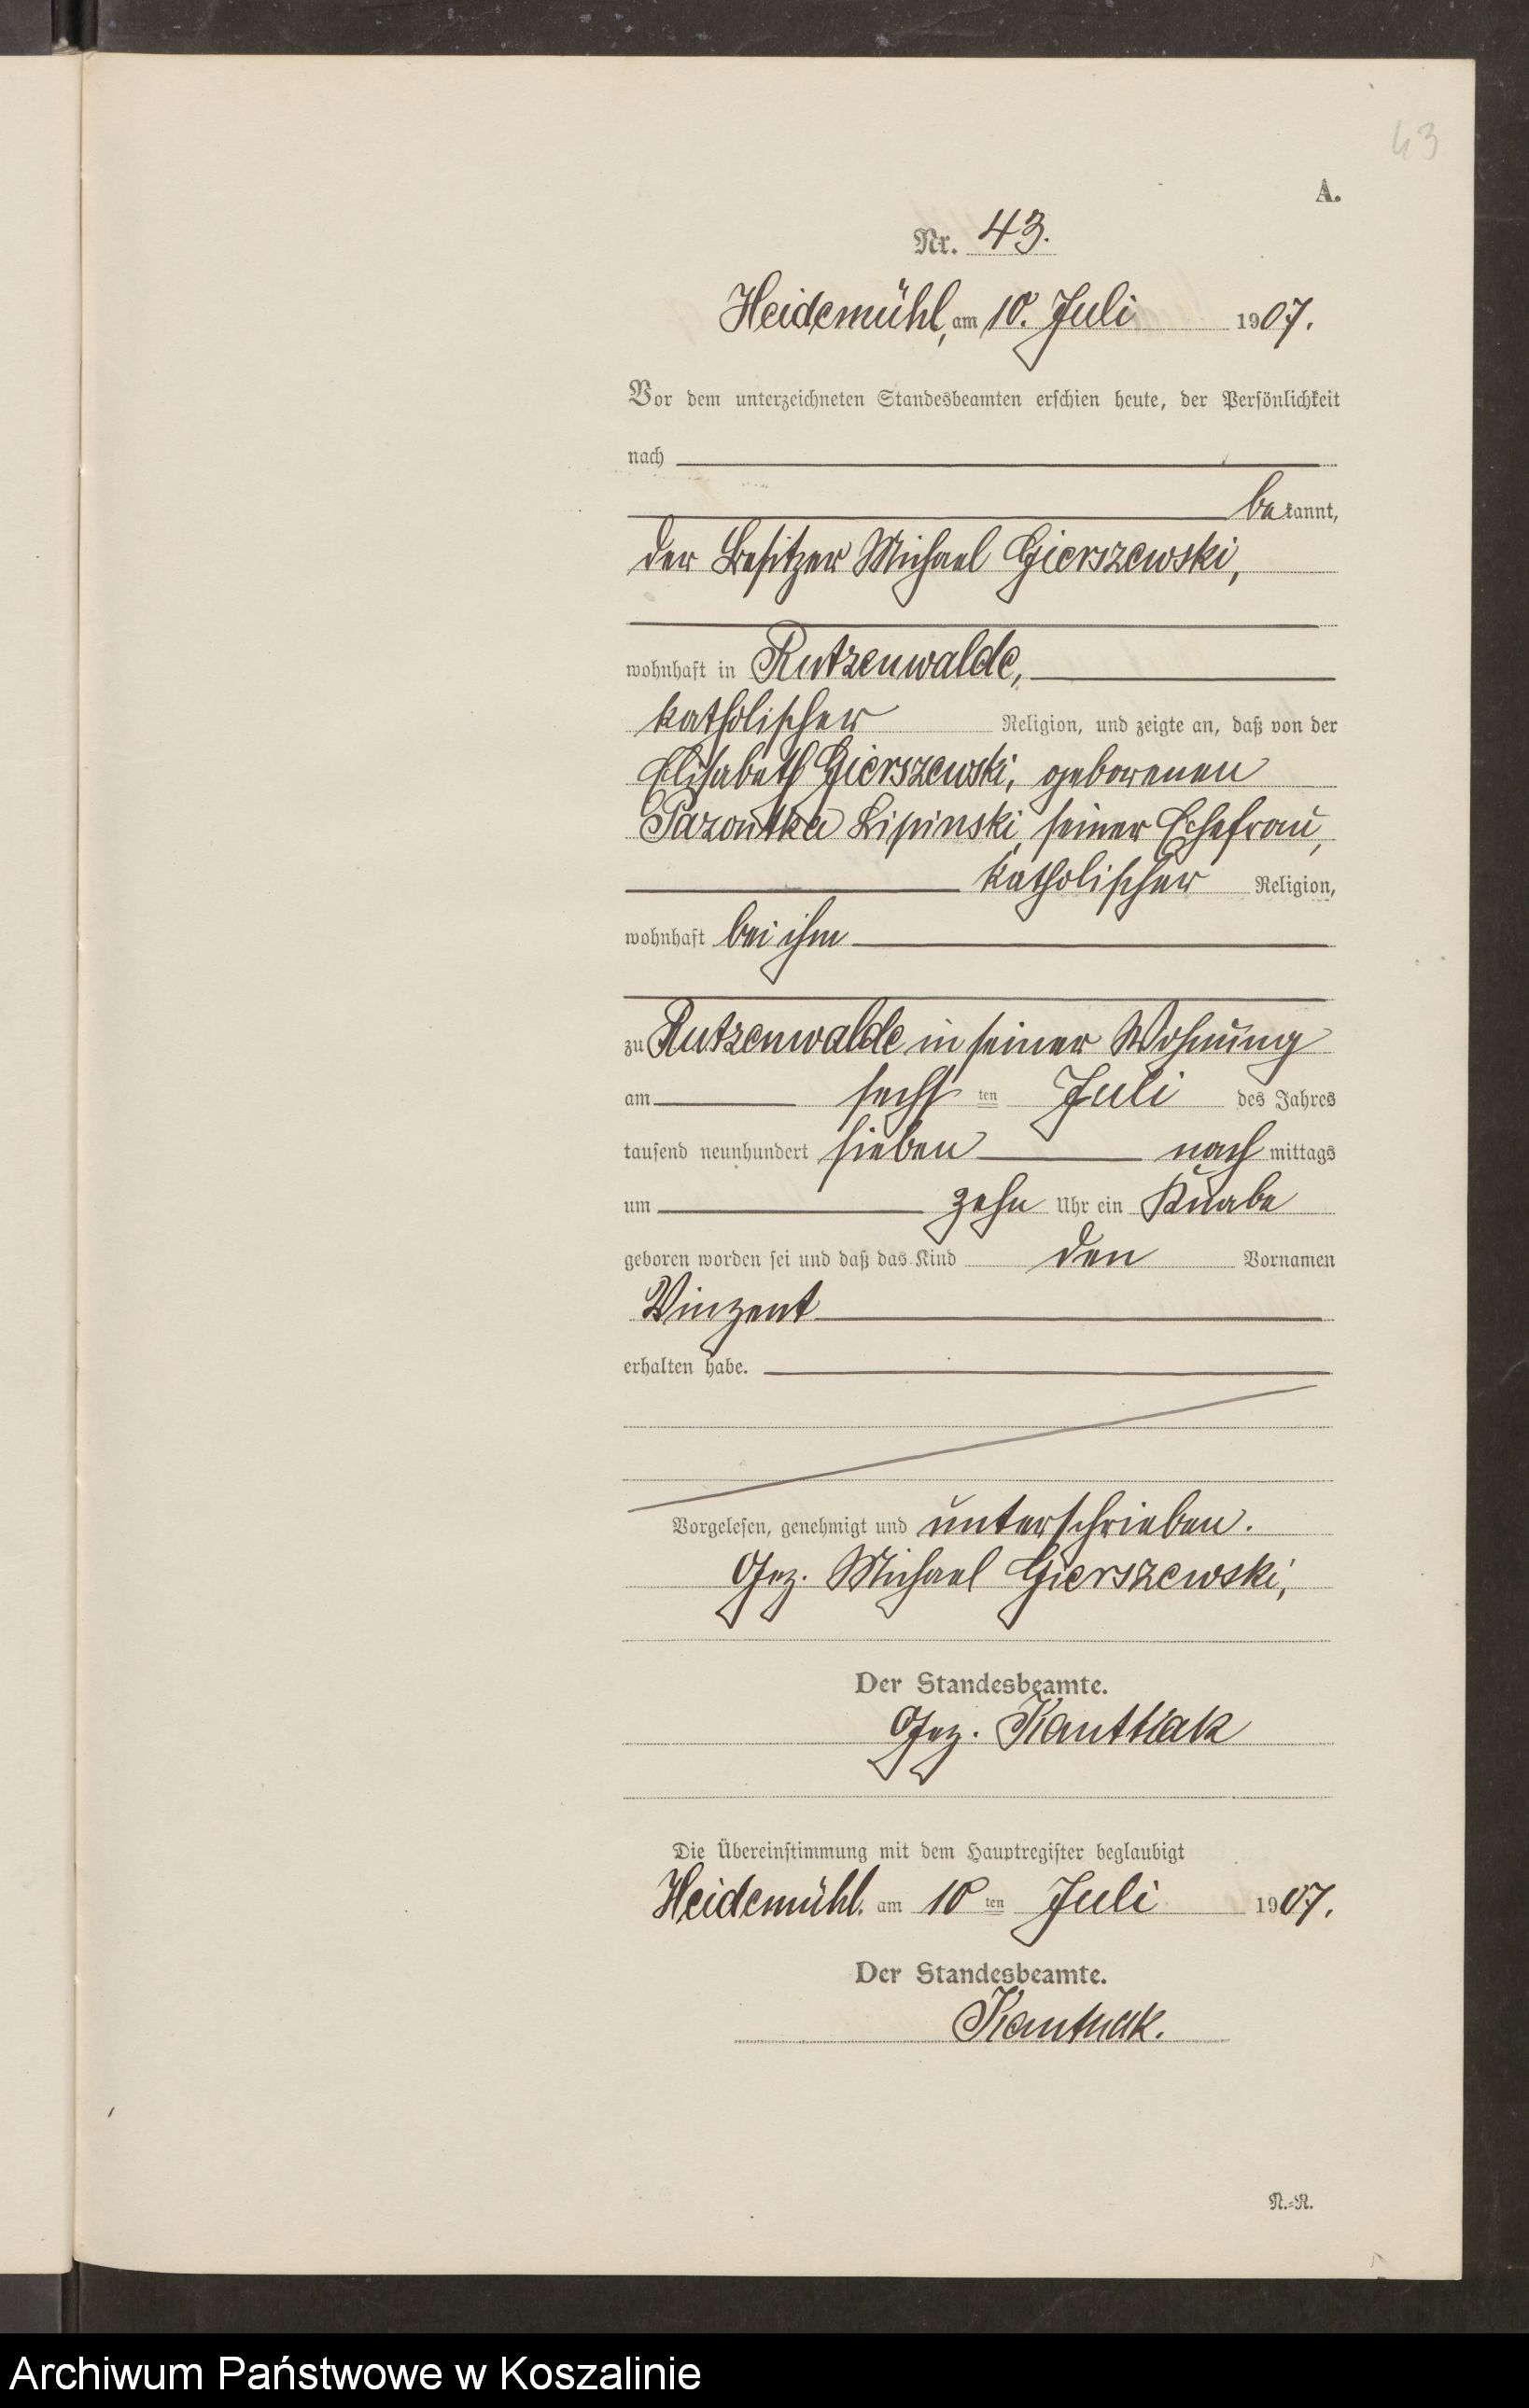 43
A.
Nr. 43.
Heidemühl, am 10. Juli 1907.
Vor dem unterzeichneten Standesbeamten erschien heute, der Persönlichkeit
nach
bekannt,
der Besitzer Michael Gierszewski,
wohnhaft in Rutzenwalde,
katholischer Religion, und zeigte an, daß von der
Elisabeth Gierszewski, geborenen
Pazontka Lipinski, seiner Ehefrau,
katholischer Religion,
wohnhaft bei ihm
zu Rutzenwalde in seiner Wohnung
am sechsten Juli des Jahres
tausend neunhundert sieben nachmittags
um zehn Uhr ein Knabe
geboren worden sei und daß das Kind den Vornamen
Vinzent
erhalten habe.
Vorgelesen, genehmigt und unterschrieben.
Gez. Michael Gierszewski,
Der Standesbeamte.
Gez.
Die Übereinstimmung mit dem Hauptregister beglaubigt
Heidemühl. am 10ten Juli 1907.
Der Standesbeamte.
N.-R.
Archiwum Państwowe w Koszalinie